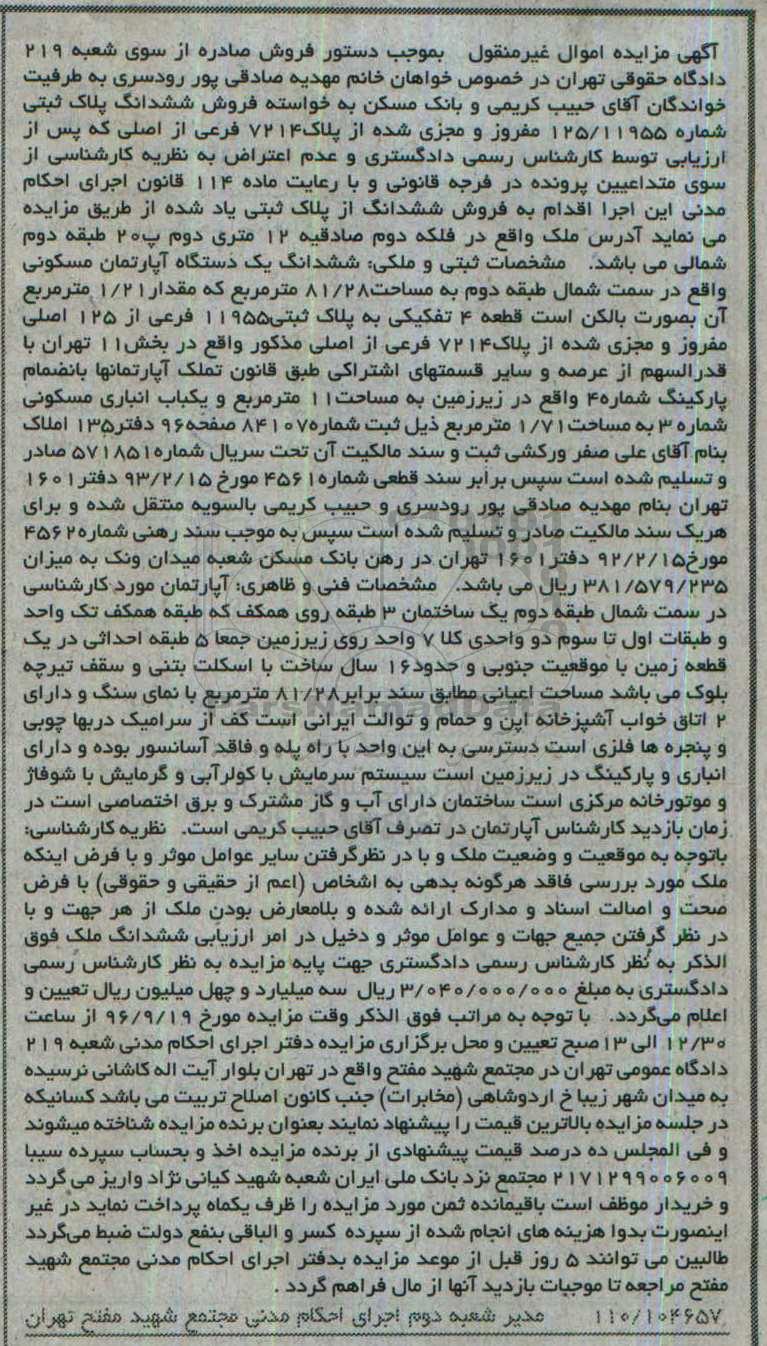 آگهی مزایده اموال غیرمنقول   بموجب دستور فروش صادره از سوی شعبه ۲۱۹
دادگاه حقوقی تهران در خصوص خواهان خانم مهدیه صادقی پور رودسری به طرفیت
خواندگان آقای حبیب کریمی و بانک مسکن به خواسته فروش ششدانگ پلاک ثبتی
شماره ۱۲۵/۱۱۹۵۵ مفروز و مجزی شده از پلاک۷۲۱۴ فرعی از اصلی که پس از
ارزیابی توسط کارشناس رسمی دادگستری و عدم اعتراض به نظریه کارشناسی از
سوی متداعیین پرونده در فرجه قانونی و با رعایت ماده ۱۱۴ قانون اجرای احکام
مدنی این اجرا اقدام به فروش ششدانگ از پلاک ثبتی یاد شده از طریق مزایده
می نماید آدرس ملک واقع در فلکه دوم صادقیه ۱۲ متری دوم پ۲۰ طبقه دوم
شمالی می باشد.   مشخصات ثبتی و ملکی: ششدانگ یک دستگاه آپارتمان مسکونی
واقع در سمت شمال طبقه دوم به مساحت۸۱/۲۸ مترمربع که مقدار۱/۲۱ مترمربع
آن بصورت بالکن است قطعه ۴ تفکیکی به پلاک ثبتی۱۱۹۵۵ فرعی از ۱۲۵ اصلی
مفروز و مجزی شده از پلاک۷۲۱۴ فرعی از اصلی مذکور واقع در بخش۱۱ تهران با
قدرالسهم از عرصه و سایر قسمتهای اشتراکی طبق قانون تملک آپارتمانها بانضمام
پارکینگ شماره۴ واقع در زیرزمین به مساحت۱۱ مترمربع و یکباب انباری مسکونی
شماره ۳ به مساحت۱/۷۱ مترمربع ذیل ثبت شماره۸۴۱۰۷ صفحه۹۶ دفتر۱۳۵ املاک
بنام آقای علی صفر ورکشی ثبت و سند مالکیت آن تحت سریال شماره۵۷۱۸۵۱ صادر
و تسلیم شده است سپس برابر سند قطعی شماره۴۵۶۱ مورخ ۹۳/۲/۱۵ دفتر۱۶۰۱
تهران بنام مهدیه صادقی پور رودسری و حبیب کریمی بالسویه منتقل شده و برای
هریک سند مالکیت صادر و تسلیم شده است سپس به موجب سند رهنی شماره۴۵۶۲
مورخ۹۲/۲/۱۵ دفتر۱۶۰۱ تهران در رهن بانک مسکن شعبه میدان ونک به میزان
۳۸۱/۵۷۹/۲۳۵ ریال می باشد.   مشخصات فنی و ظاهری: آپارتمان مورد کارشناسی
در سمت شمال طبقه دوم یک ساختمان ۳ طبقه روی همکف که طبقه همکف تک واحد
و طبقات اول تا سوم دو واحدی کلا ۷ واحد روی زیرزمین جمعا ۵ طبقه احداثی در یک
قطعه زمین با موقعیت جنوبی و حدود۱۶ سال ساخت با اسکلت بتنی و سقف تیرچه
بلوک می باشد مساحت اعیانی مطابق سند برابر۸۱/۲۸ مترمربع با نمای سنگ و دارای
۲ اتاق خواب آشپزخانه اپن و حمام و توالت ایرانی است کف از سرامیک دربها چوبی
و پنجره ها فلزی است دسترسی به این واحد با راه پله و فاقد آسانسور بوده و دارای
انباری و پارکینگ در زیرزمین است سیستم سرمایش با کولرآبی و گرمایش با شوفاژ
و موتورخانه مرکزی است ساختمان دارای آب و گاز مشترک و برق اختصاصی است در
زمان بازدید کارشناس آپارتمان در تصرف آقای حبیب کریمی است.   نظریه کارشناسی:
باتوجه به موقعیت و وضعیت ملک و با در نظرگرفتن سایر عوامل موثر و با فرض اینکه
ملک مورد بررسی فاقد هرگونه بدهی به اشخاص (اعم از حقیقی و حقوقی) با فرض
صحت و اصالت اسناد و مدارک ارائه شده و بلامعارض بودن ملک از هر جهت و با
در نظر گرفتن جمیع جهات و عوامل موثر و دخیل در امر ارزیابی ششدانگ ملک فوق
الذکر به نظر کارشناس رسمی دادگستری جهت پایه مزایده به نظر کارشناس رسمی
دادگستری به مبلغ ۳/۰۴۰/۰۰۰/۰۰۰ ریال  سه میلیارد و چهل میلیون ریال تعیین و
اعلام میگردد.   با توجه به مراتب فوق الذکر وقت مزایده مورخ ۹۶/۹/۱۹ از ساعت
۱۲/۳۰ الی ۱۳ صبح تعیین و محل برگزاری مزایده دفتر اجرای احکام مدنی شعبه ۲۱۹
دادگاه عمومی تهران در مجتمع شهید مفتح واقع در تهران بلوار آیت اله کاشانی نرسیده
به میدان شهر زیبا خ اردوشاهی (مخابرات) جنب کانون اصلاح تربیت می باشد کسانیکه
در جلسه مزایده بالاترین قیمت را پیشنهاد نمایند بعنوان برنده مزایده شناخته میشوند
و فی المجلس ده درصد قیمت پیشنهادی از برنده مزایده اخذ و بحساب سپرده سیبا
۲۱۷۱۲۹۹۰۰۶۰۰۹ مجتمع نزد بانک ملی ایران شعبه شهید کیانی نژاد واریز می گردد
و خریدار موظف است باقیمانده ثمن مورد مزایده را ظرف یکماه پرداخت نماید در غیر
اینصورت بدوا هزینه های انجام شده از سپرده کسر و الباقی بنفع دولت ضبط میگردد
طالبین می توانند ۵ روز قبل از موعد مزایده بدفتر اجرای احکام مدنی مجتمع شهید
مفتح مراجعه تا موجبات بازدید آنها از مال فراهم گردد .
۱۱۰/۱۰۴۶۵۷   مدیر شعبه دوم اجرای احکام مدنی مجتمع شهید مفتح تهران